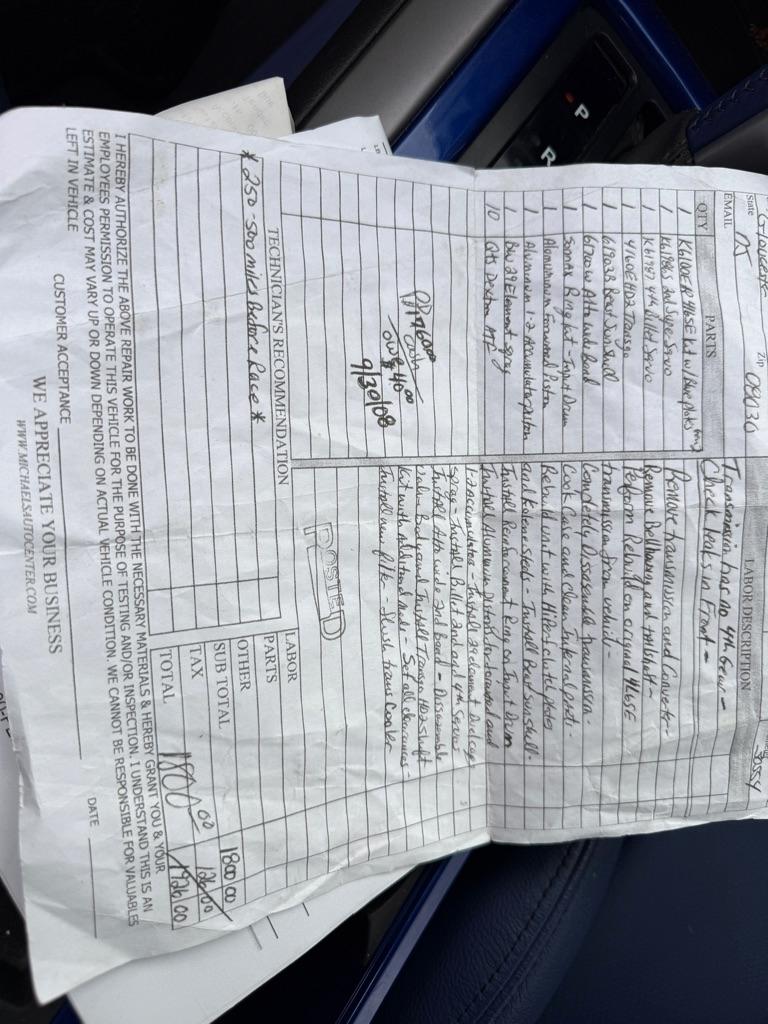 Gloucester
State NJ Zip 08030
EMAIL
30554
QTY PARTS LABOR DESCRIPTION
Transmission has no 4th Gear -
Check leaks in Front -
1 K6100ER 4L65E kit w/ Blue plates
Remove transmission and Converter
1 2nd Super Servo
Remove Bellhousing and tailshaft -
1 4th Billet Servo
Perform Rebuild on original 4L65E
1 4160E HD2 Transgo
transmission from vehicle -
1 Rear Sun Shell
Completely Disassemble transmission -
1 Alto wide Band
Cook Case and Clean internal parts -
1 Sonnax Ring kit - Input Drum
Rebuild unit with clutch plates
1 Aluminum Forward Piston
and Kolene steels - Install Rear Sun shell -
1 Aluminum 1-2 Accumulator piston
Install Reinforcement Ring on Input Drum
1 BW 29 Element sprag
Install Aluminum Pistons in forward and
10 Qts Dexron ATF
1-2 accumulator - Install 29 element Dual cage
sprag - Install Billet 2nd and 4th Servos
Install Alto wide 2nd Band - Disassemble
Valve Body and Install Transgo HD2 shift
kit with additional mods - Set all clearances -
Install new filter - flush trans Cooler
cash
9/30/08
POSTED
TECHNICIAN'S RECOMMENDATION
* 250-500 miles Before Race *
LABOR
PARTS
OTHER
SUB TOTAL 1800.00
TAX 126.00
TOTAL 1800.00 1926.00
I HEREBY AUTHORIZE THE ABOVE REPAIR WORK TO BE DONE WITH THE NECESSARY MATERIALS & HEREBY GRANT YOU & YOUR
EMPLOYEES PERMISSION TO OPERATE THIS VEHICLE FOR THE PURPOSE OF TESTING AND/OR INSPECTION. I UNDERSTAND THIS IS AN
ESTIMATE & COST MAY VARY UP OR DOWN DEPENDING ON ACTUAL VEHICLE CONDITION. WE CANNOT BE RESPONSIBLE FOR VALUABLES
LEFT IN VEHICLE
CUSTOMER ACCEPTANCE DATE
WE APPRECIATE YOUR BUSINESS
WWW.MICHAELSAUTOCENTER.COM
P
R